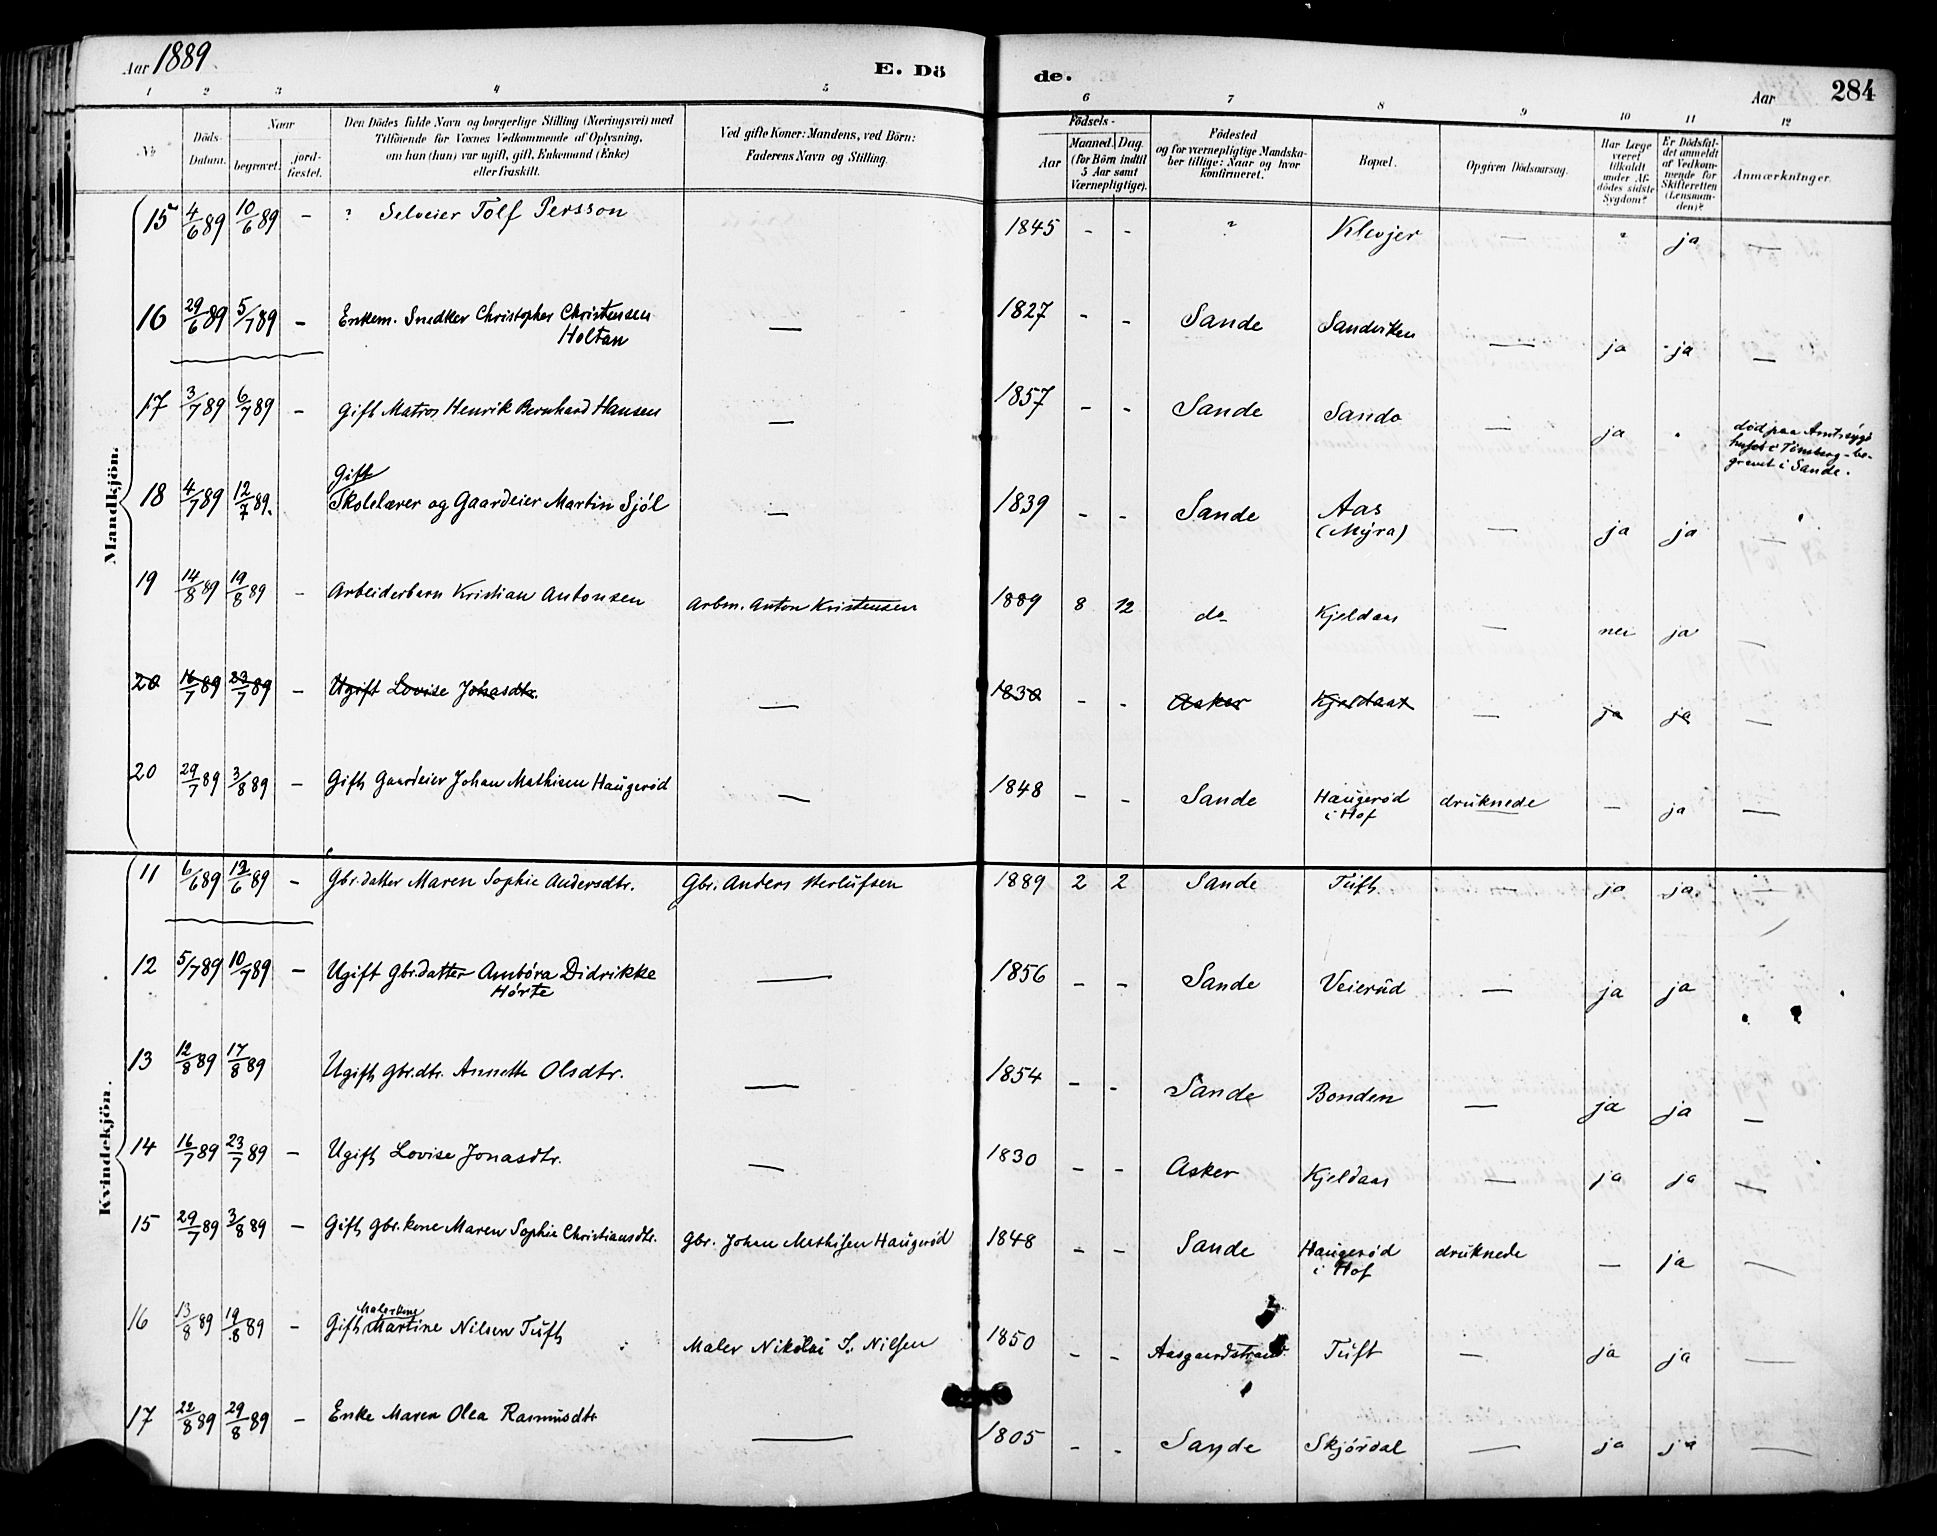 Aar 1889
E. Dö
de.
Aar
284
1 2 3 4 5 6 7 8 9 10 11 12
No
Döds-Datum.
Naar
begravet.
jord-fæstet.
Den Dödes fulde Navn og borgerlige Stilling (Næringsvei) med
Tilföiende for Voxnes Vedkommende af Oplysning,
om han (hun) var ugift, gift, Enkemand (Enke)
eller fraskilt.
Ved gifte Koner: Mandens, ved Börn:
Faderens Navn og Stilling.
Födsels-
Aar
Maaned. Dag.
(for Börn indtil
5 Aar samt
Værnepligtige).
Födested
og for værnepligtige Mandska-
ber tillige: Naar og hvor
konfirmeret.
Bopæl.
Opgiven Dödsaarsag.
Har Læge
været
tilkaldt
under Af-
dödes sidste
Sygdom?
Er Dödsfal-
det anmeldt
af Vedkom-
mende for
Skifteretten
(Lensman-
den)?
Anmærkninger.
Mandkjön.
15 4/6 89 10/6 89 - ? Selveier Tolf Persson 1845 - - ? Klevjer — ? ja —
16 29/6 89 5/7 89 - Enkem. Snedker Christopher Christensen — 1827 - - Sande Sandviken — ja ja —
Holtan
17 3/7 89 6/7 89 - Gift Matros Henrik Bernhard Hansen — 1857 - - Sande Sando — ja
död paa Amtssyge
huset i Tönsberg - be-
gravet i Sande.
Gift
18 4/7 89 12/7 89. Skolelærer og Gaardeier Martin Sjöl — 1839 - - Sande Aas — ja ja —
(Myra)
19 14/8 89 19/8 89 - Arbeiderbarn Kristian Antonsen Arbm. Anton Kristensen 1889 8 12 do Kjeldaas — nei ja —
20 16/7 89 23/7 89 - Ugift Lovise Johasdtr. — 1830 - - Asker Kjeldaas — ja ja —
20 29/7 89 3/8 89 - Gift Gaardeier Johan Mathisen Haugeröd — 1848 - - Sande Haugeröd druknede — ja —
i Hof
Kvindekjön.
11 6/6 89 12/6 89 - Gbr.datter Maren Sophie Andersdtr. Gbr. Anders Herlufsen 1889 2 2 Sande Tuft — ja ja —
12 5/7 89 10/7 89 - Ugift Gbr.datter Ambóra Didrikke — 1856 - - Sande Veierud — ja ja
Hörte
13 12/8 89 17/8 89 Ugift Gbr.dtr. Annette Olsdtr. — 1854 - - Sande Bonden — ja ja —
14 16/7 89 23/7 89 - Ugift Lovise Jonasdtr. — 1830 - - Asker Kjeldaas — ja ja —
15 29/7 89 3/8 89 - Gift Gbr.kone Maren Sophie Christiansdtr. Gbr. Johan Mathisen Haugeröd 1848 - - Sande Haugeröd druknede — ja —
i Hof
Malerkone
16 13/8 89 19/8 89 - Gift Martine Nilsen Tuft Maler Nikolai I. Nilsen 1850 - - Aasgaardstrand Tuft — ja ja —
17 22/8 89 29/8 89 - Enke Maren Olea Rasmusdtr — 1805 - - Sande Skjördal — ja ja —